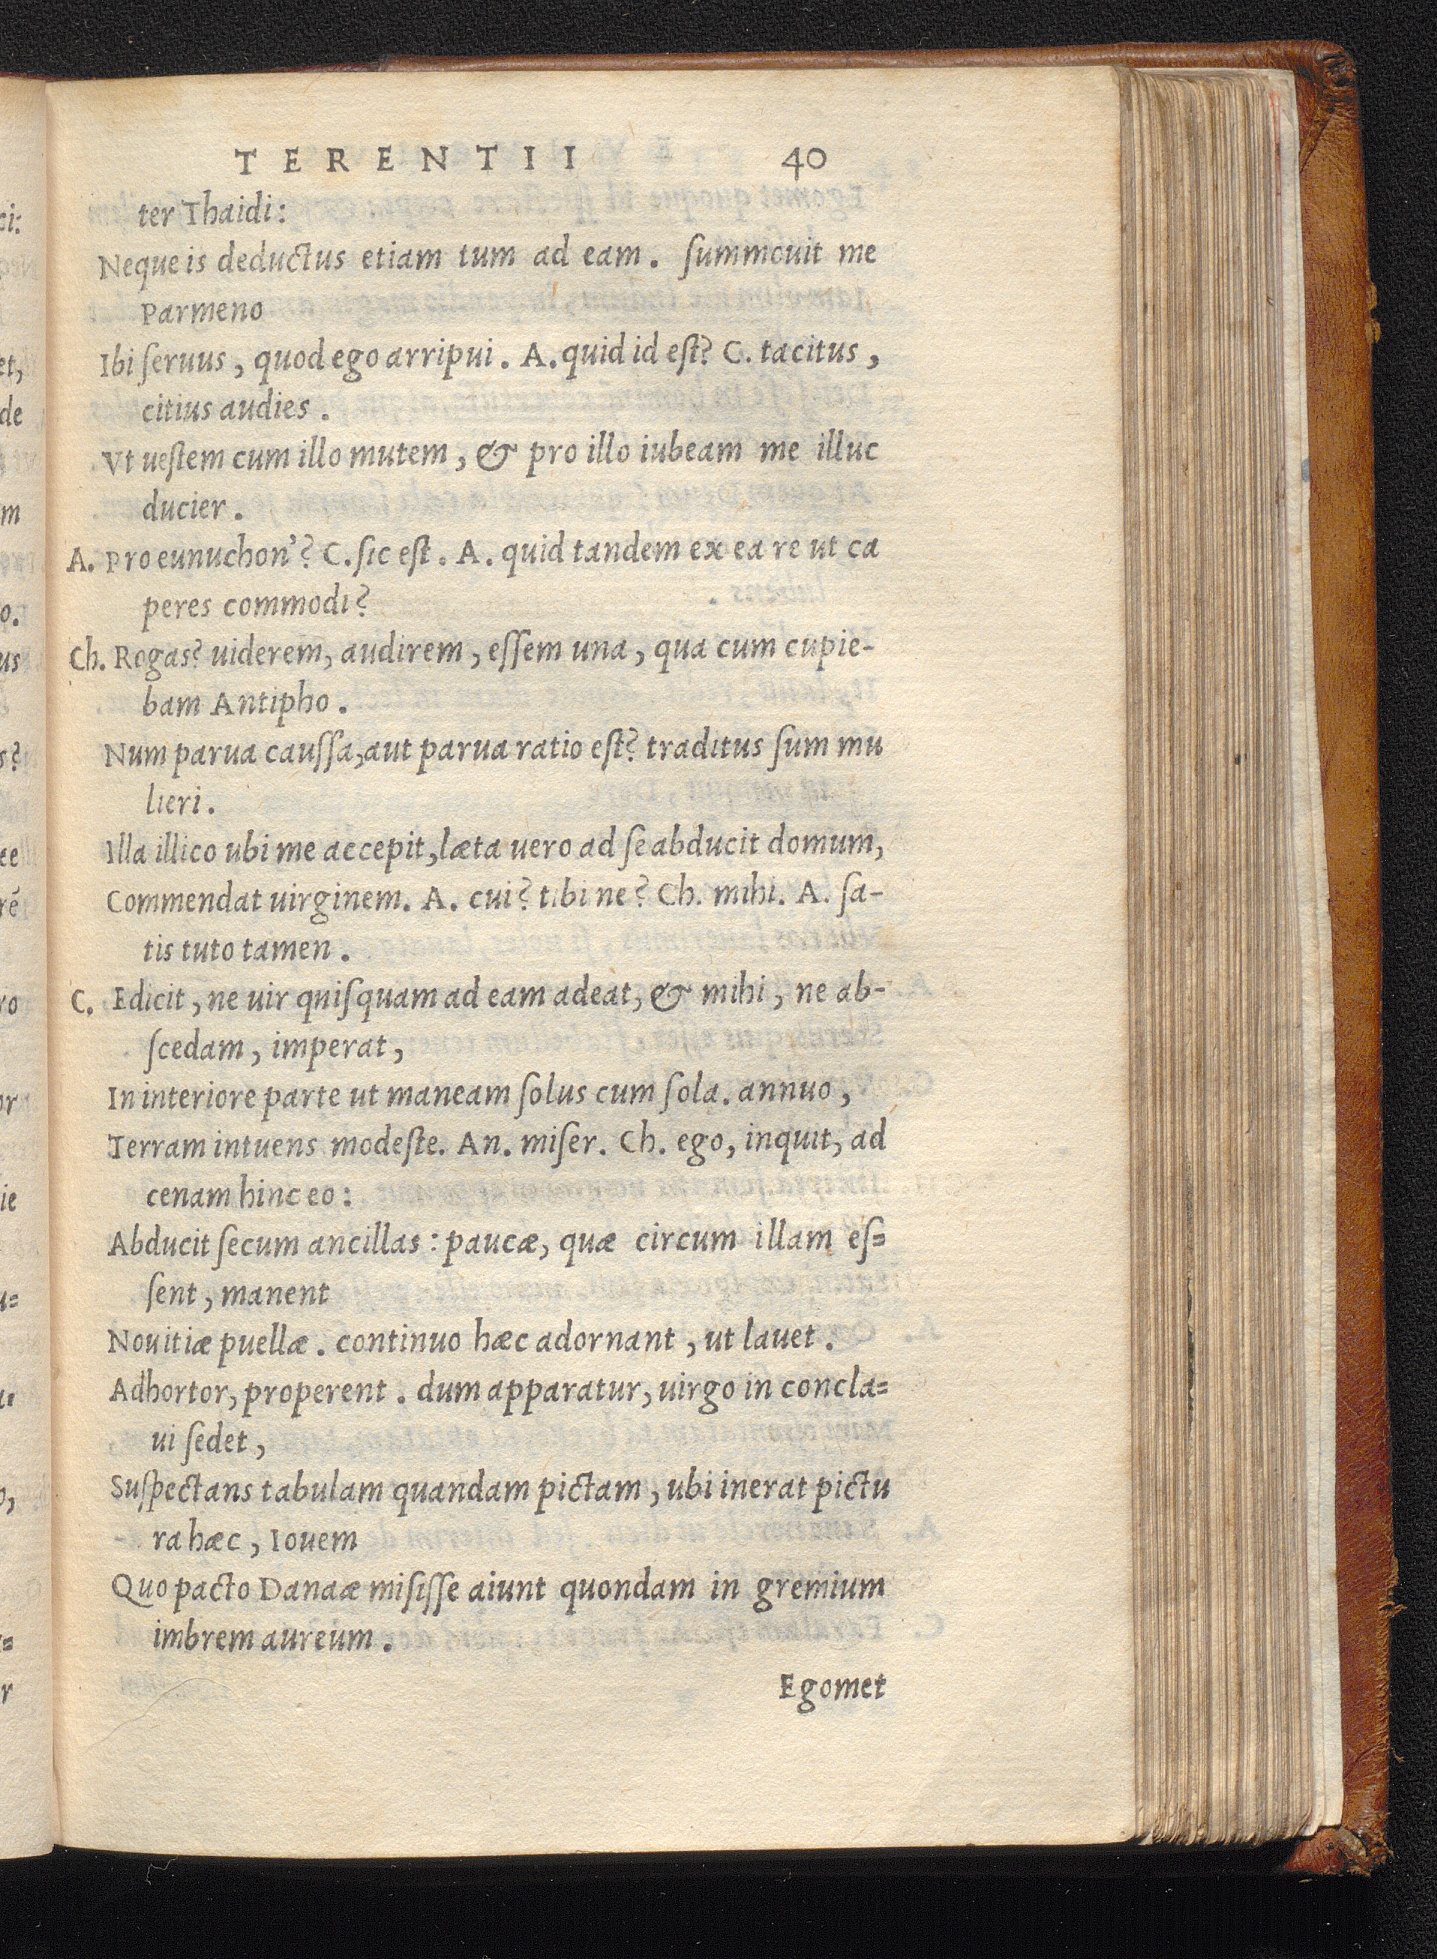 TERENTII 40
ter Thaidi:
Neque is deductus etiam tum ad eam. ſummouit me
Parmeno
Ibi ſeruus, quod ego arripui. A. quid id eſt? C. tacitus,
citius audies.
Vt ueſtem cum illo mutem, & pro illo iubeam me illuc
ducier.
A. Pro eunuchon'? C. ſic eſt. A. quid tandem ex ea re ut ca
peres commodi?
Ch. Rogas? uiderem, audirem, eſſem una, qua cum cupie-
bam Antipho.
Num parua cauſſa, aut parua ratio eſt? traditus ſum mu
lieri.
Illa illico ubi me accepit, læta uero ad ſe abducit domum,
Commendat uirginem. A. cui? tibi ne? Ch. mihi. A. ſa-
tis tuto tamen.
C. Edicit, ne uir quiſquam ad eam adeat, & mihi, ne ab-
ſcedam, imperat,
In interiore parte ut maneam ſolus cum ſola. annuo,
Terram intuens modeſte. An. miſer. Ch. ego, inquit, ad
cenam hinc eo:
Abducit ſecum ancillas: paucæ, quæ circum illam eſ=
ſent, manent
Nouitiæ puellæ. continuo hæc adornant, ut lauet.
Adhortor, properent. dum apparatur, uirgo in concla=
ui ſedet,
Suſpectans tabulam quandam pictam, ubi inerat pictu
ra hæc, Iouem
Quo pacto Danaæ miſiſſe aiunt quondam in gremium
imbrem aureum.
Egomet